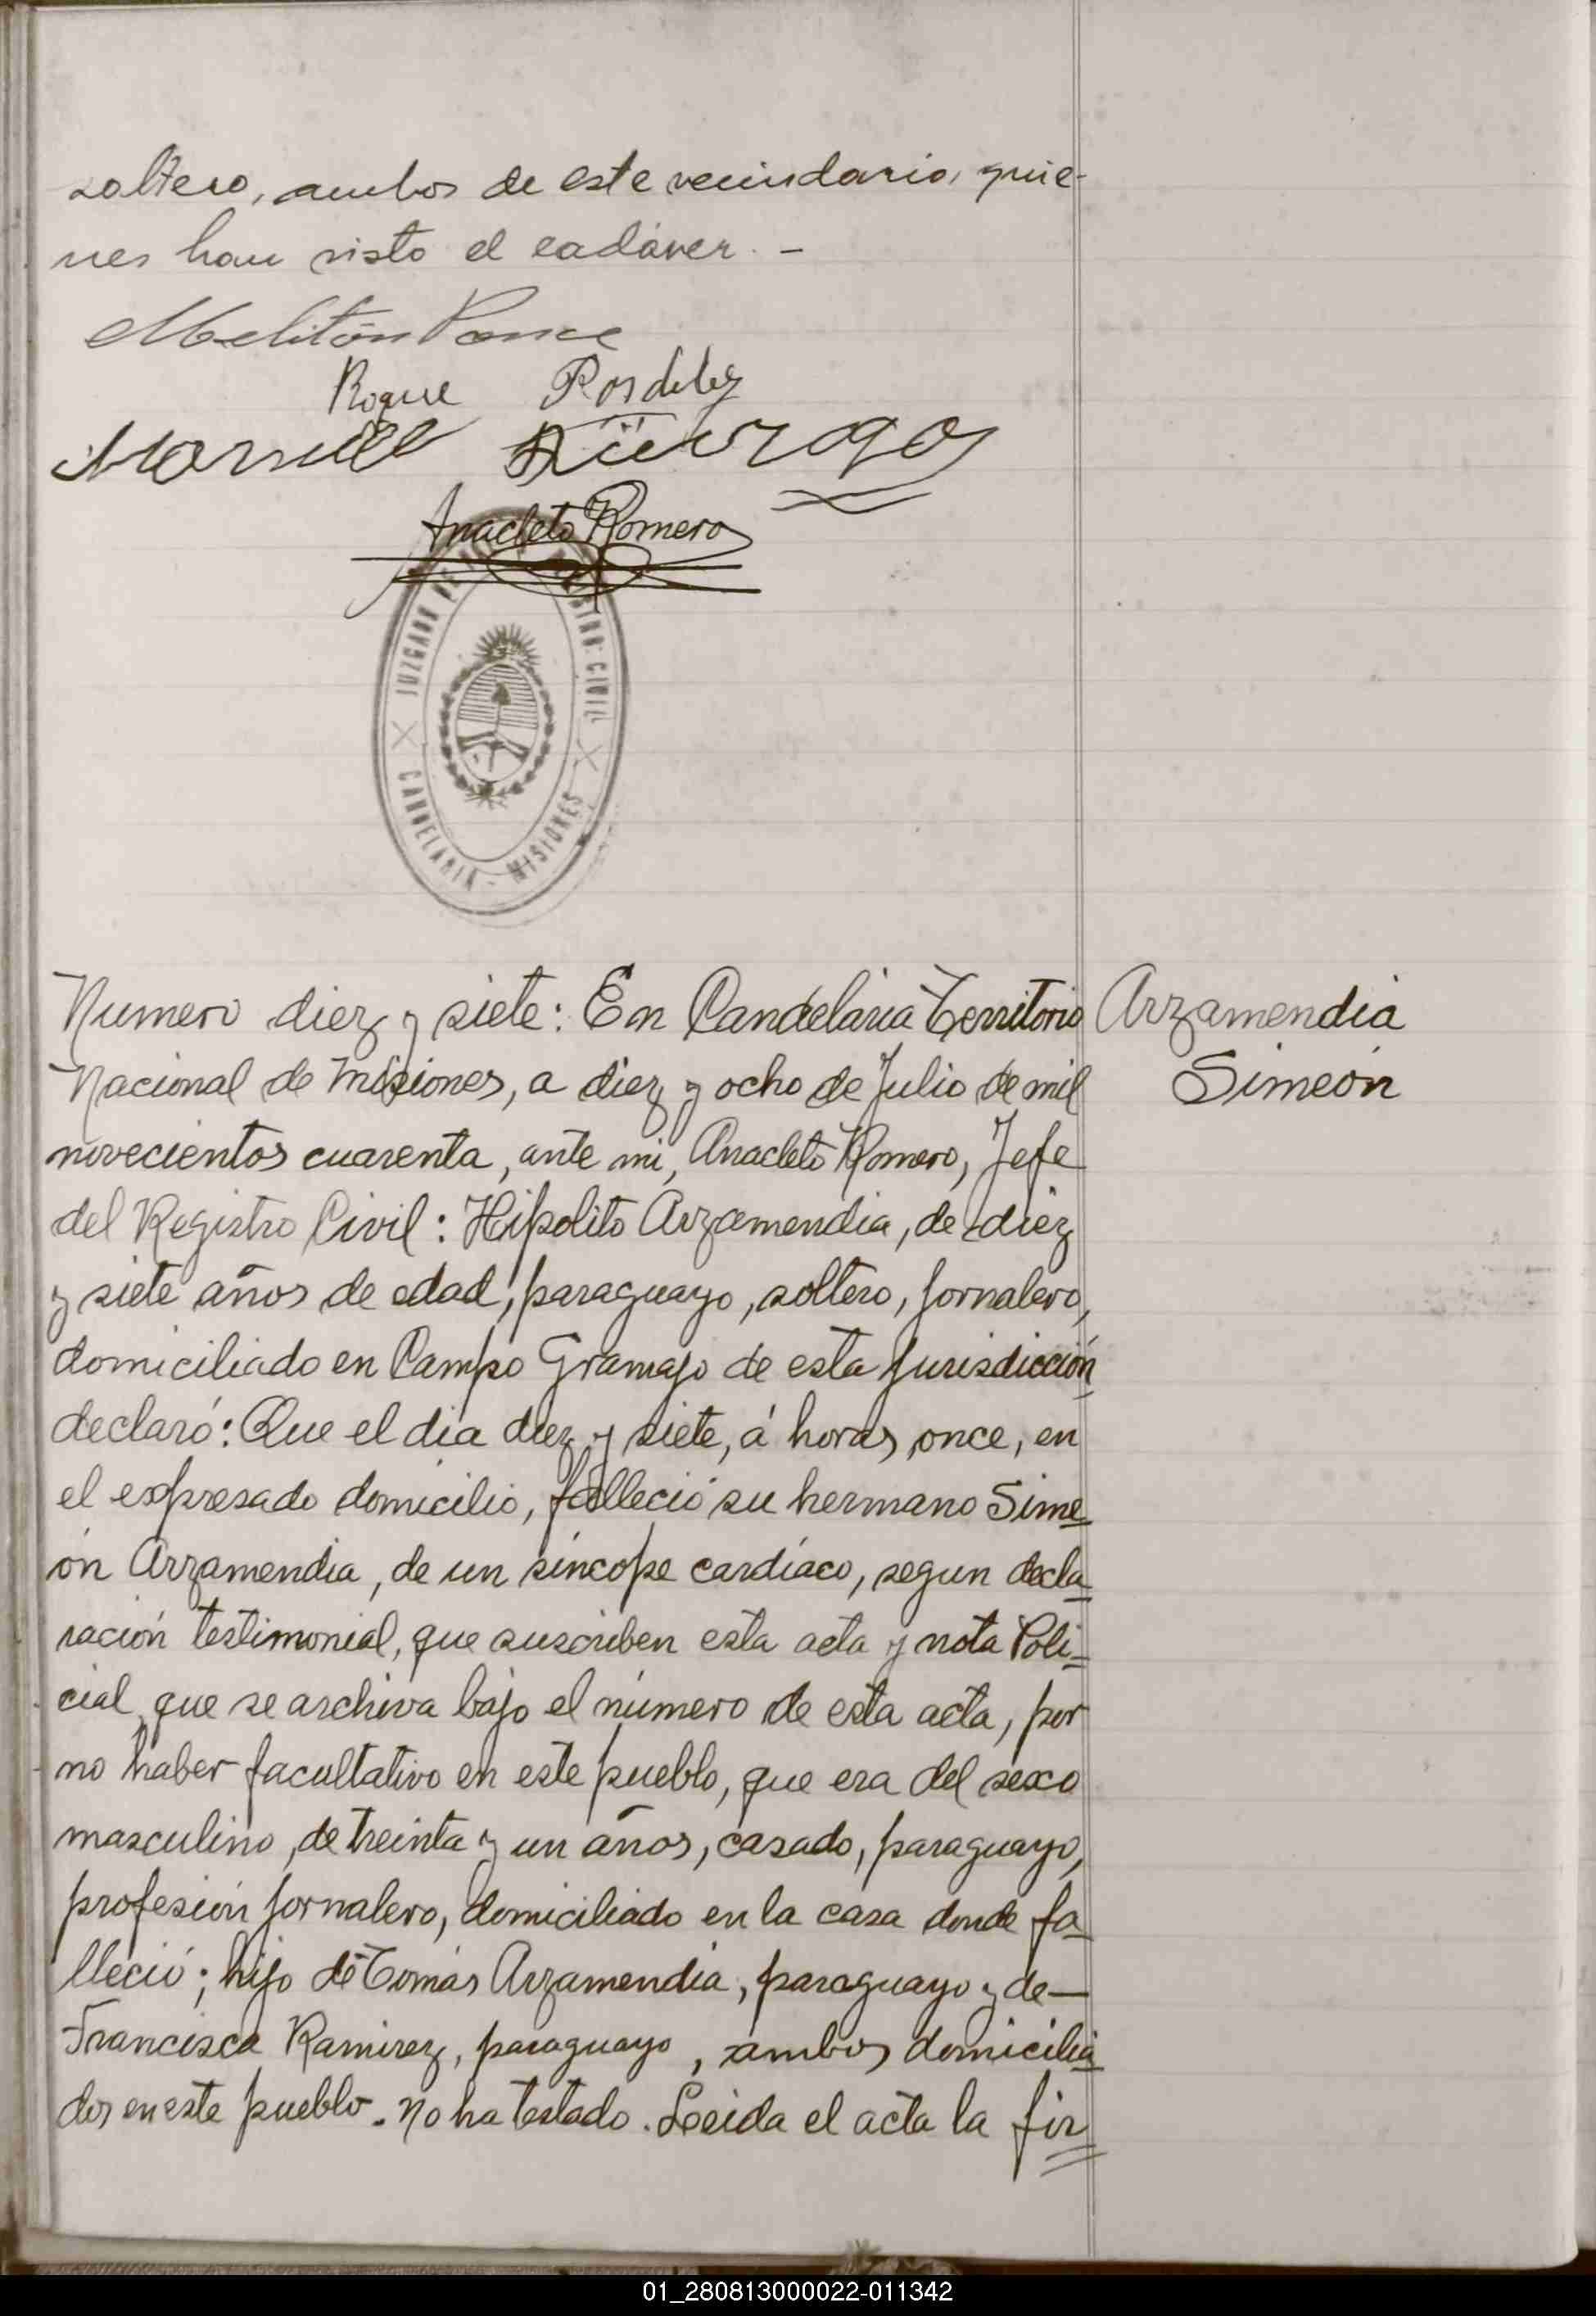 soltero, ambos de este vecindario, quie-
nes han visto el cadáver. -
Melitón Ponce
Roque
Manuel
Anacleto Romero
JUZGADO DE REGISTRO CIVIL
CANDELARIA - MISIONES
Numero diez y siete: En Candelaria Territorio
Arzamendia
Simeón
Nacional de Misiones, a diez y ocho de Julio de mil
novecientos cuarenta, ante mi, Anacleto Romero, Jefe
del Registro Civil: Hipolito Arzamendia, de diez
y siete años de edad, paraguayo, soltero, jornalero,
domiciliado en Campo Gramajo de esta jurisdicción
declaró: Que el dia diez y siete, á horas once, en
el expresado domicilio, falleció su hermano Sime
ón Arzamendia, de un síncope cardíaco, segun decla
ración testimonial, que suscriben esta acta y nota Poli=
cial que se archiva bajo el número de esta acta, por
no haber facultativo en este pueblo, que era del sexo
masculino, de treinta y un años, casado, paraguayo,
profesión jornalero, domiciliado en la casa donde fa
lleció; hijo de Tomás Arzamendia, paraguayo y de—
Francisca Ramirez, paraguayo, ambos domicilia
dos en este pueblo. No ha testado. Leeida el acta la fir
01_280813000022-011342